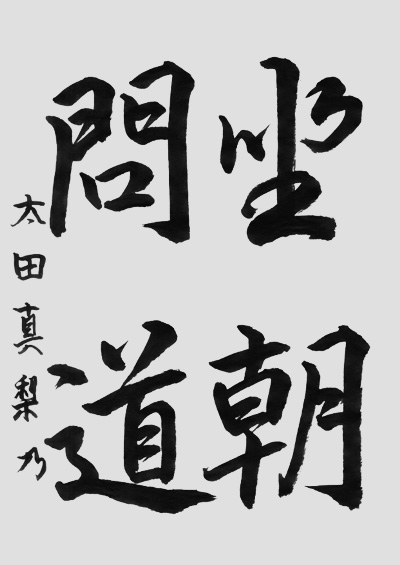 坐朝
問道
太田真梨乃